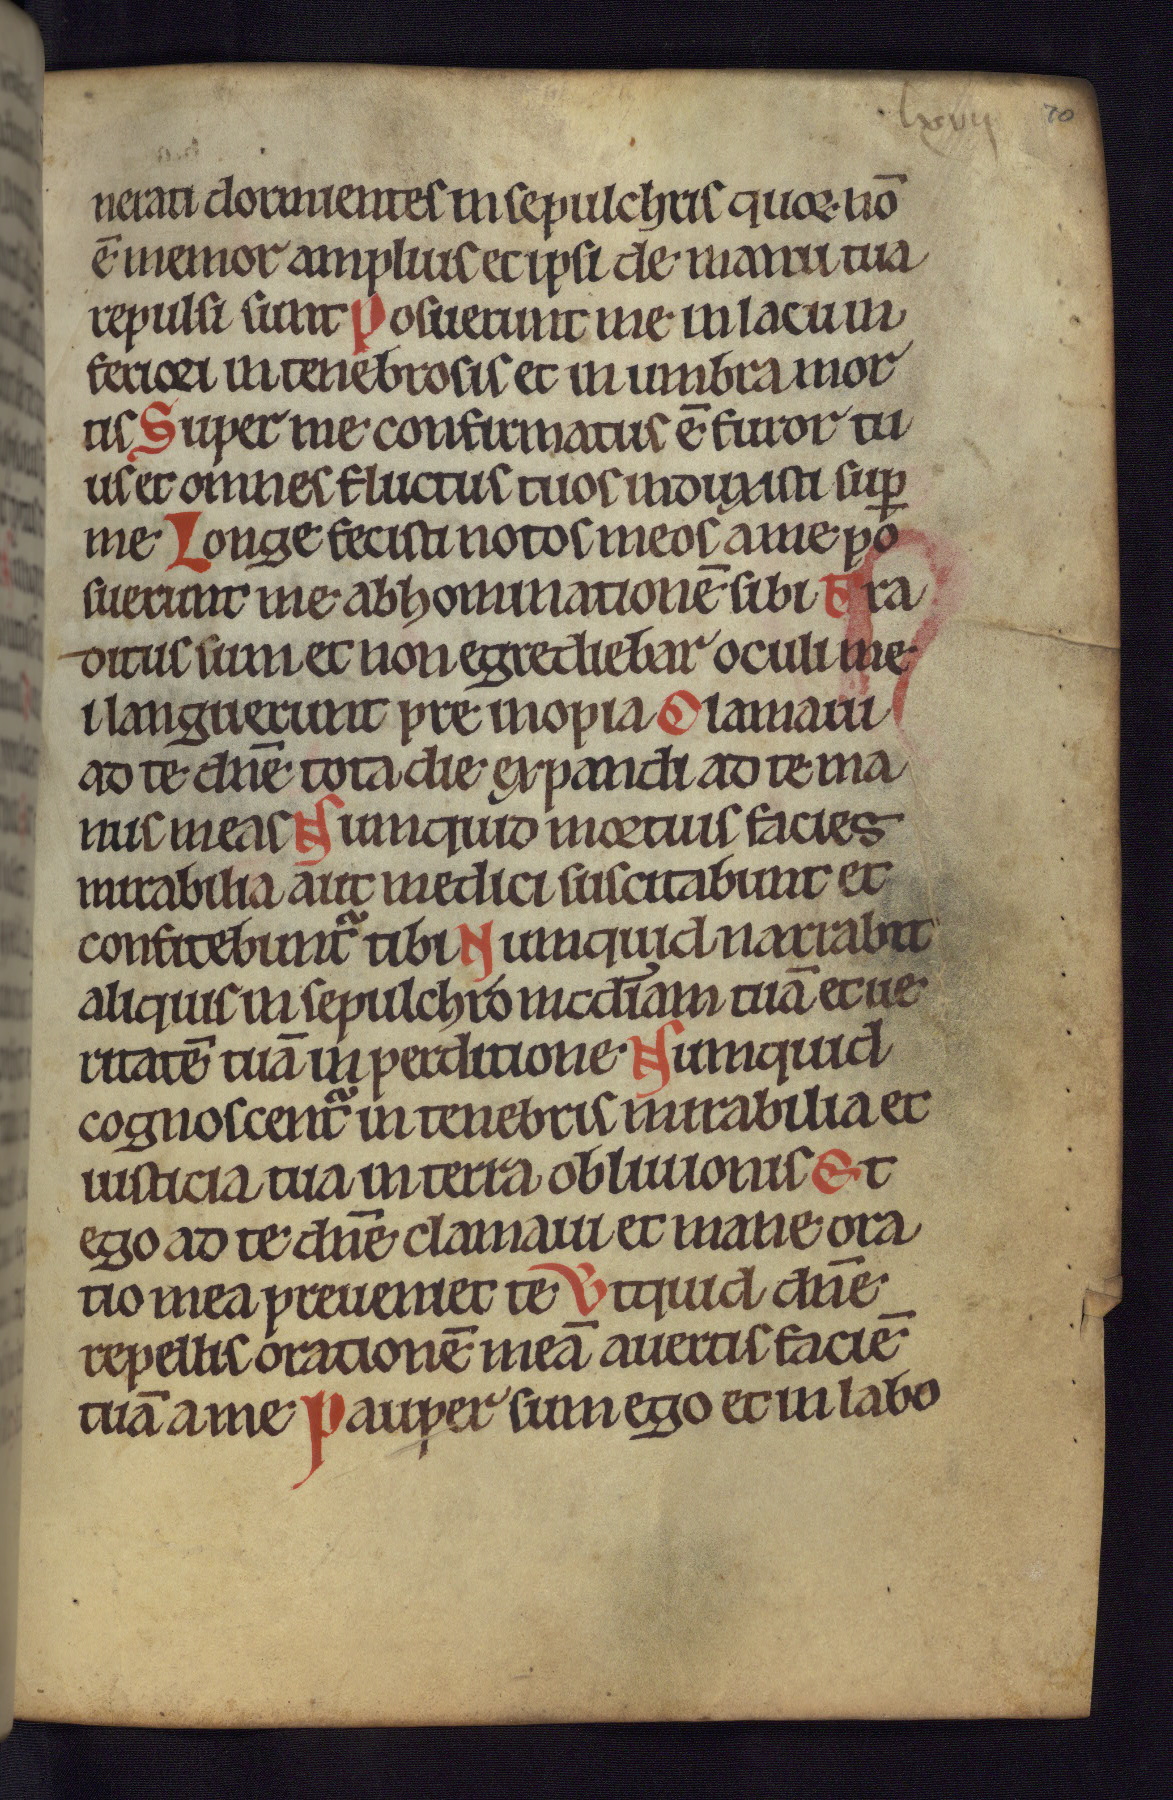 lxvii 70
nerati dormientes in sepulchris quoꝝ nō
ē memor amplius et ipsi de manu tua
repulsi sunt Posuerunt me in lacu in
feriori in tenebrosis et in umbra mor
tis Super me confirmatus ē furor tu
us et omnes fluctus tuos induxisti suꝑ
me Longe fecisti notos meos a me po
suerunt me abhominationē sibi Tra
ditus sum et non egrediebar oculi me
i languerunt pre inopia Clamaui
ad te dn̄e tota die expandi ad te ma
nus meas Numquid mortuis facies
mirabilia aut medici suscitabunt et
confitebunt᷑ tibi Numquid narrabit
aliquis in sepulchro mcdīam tuā et ue
ritatē tuā in perditione Numquid
cognoscent᷑ in tenebris mirabilia et
iusticia tua in terra obliuionis Et
ego ad te dn̄e clamaui et mane ora
tio mea preueniet te Vtquid dn̄e
repellis orationē meā auertis faciē
tuā a me Pauper sum ego et in labo